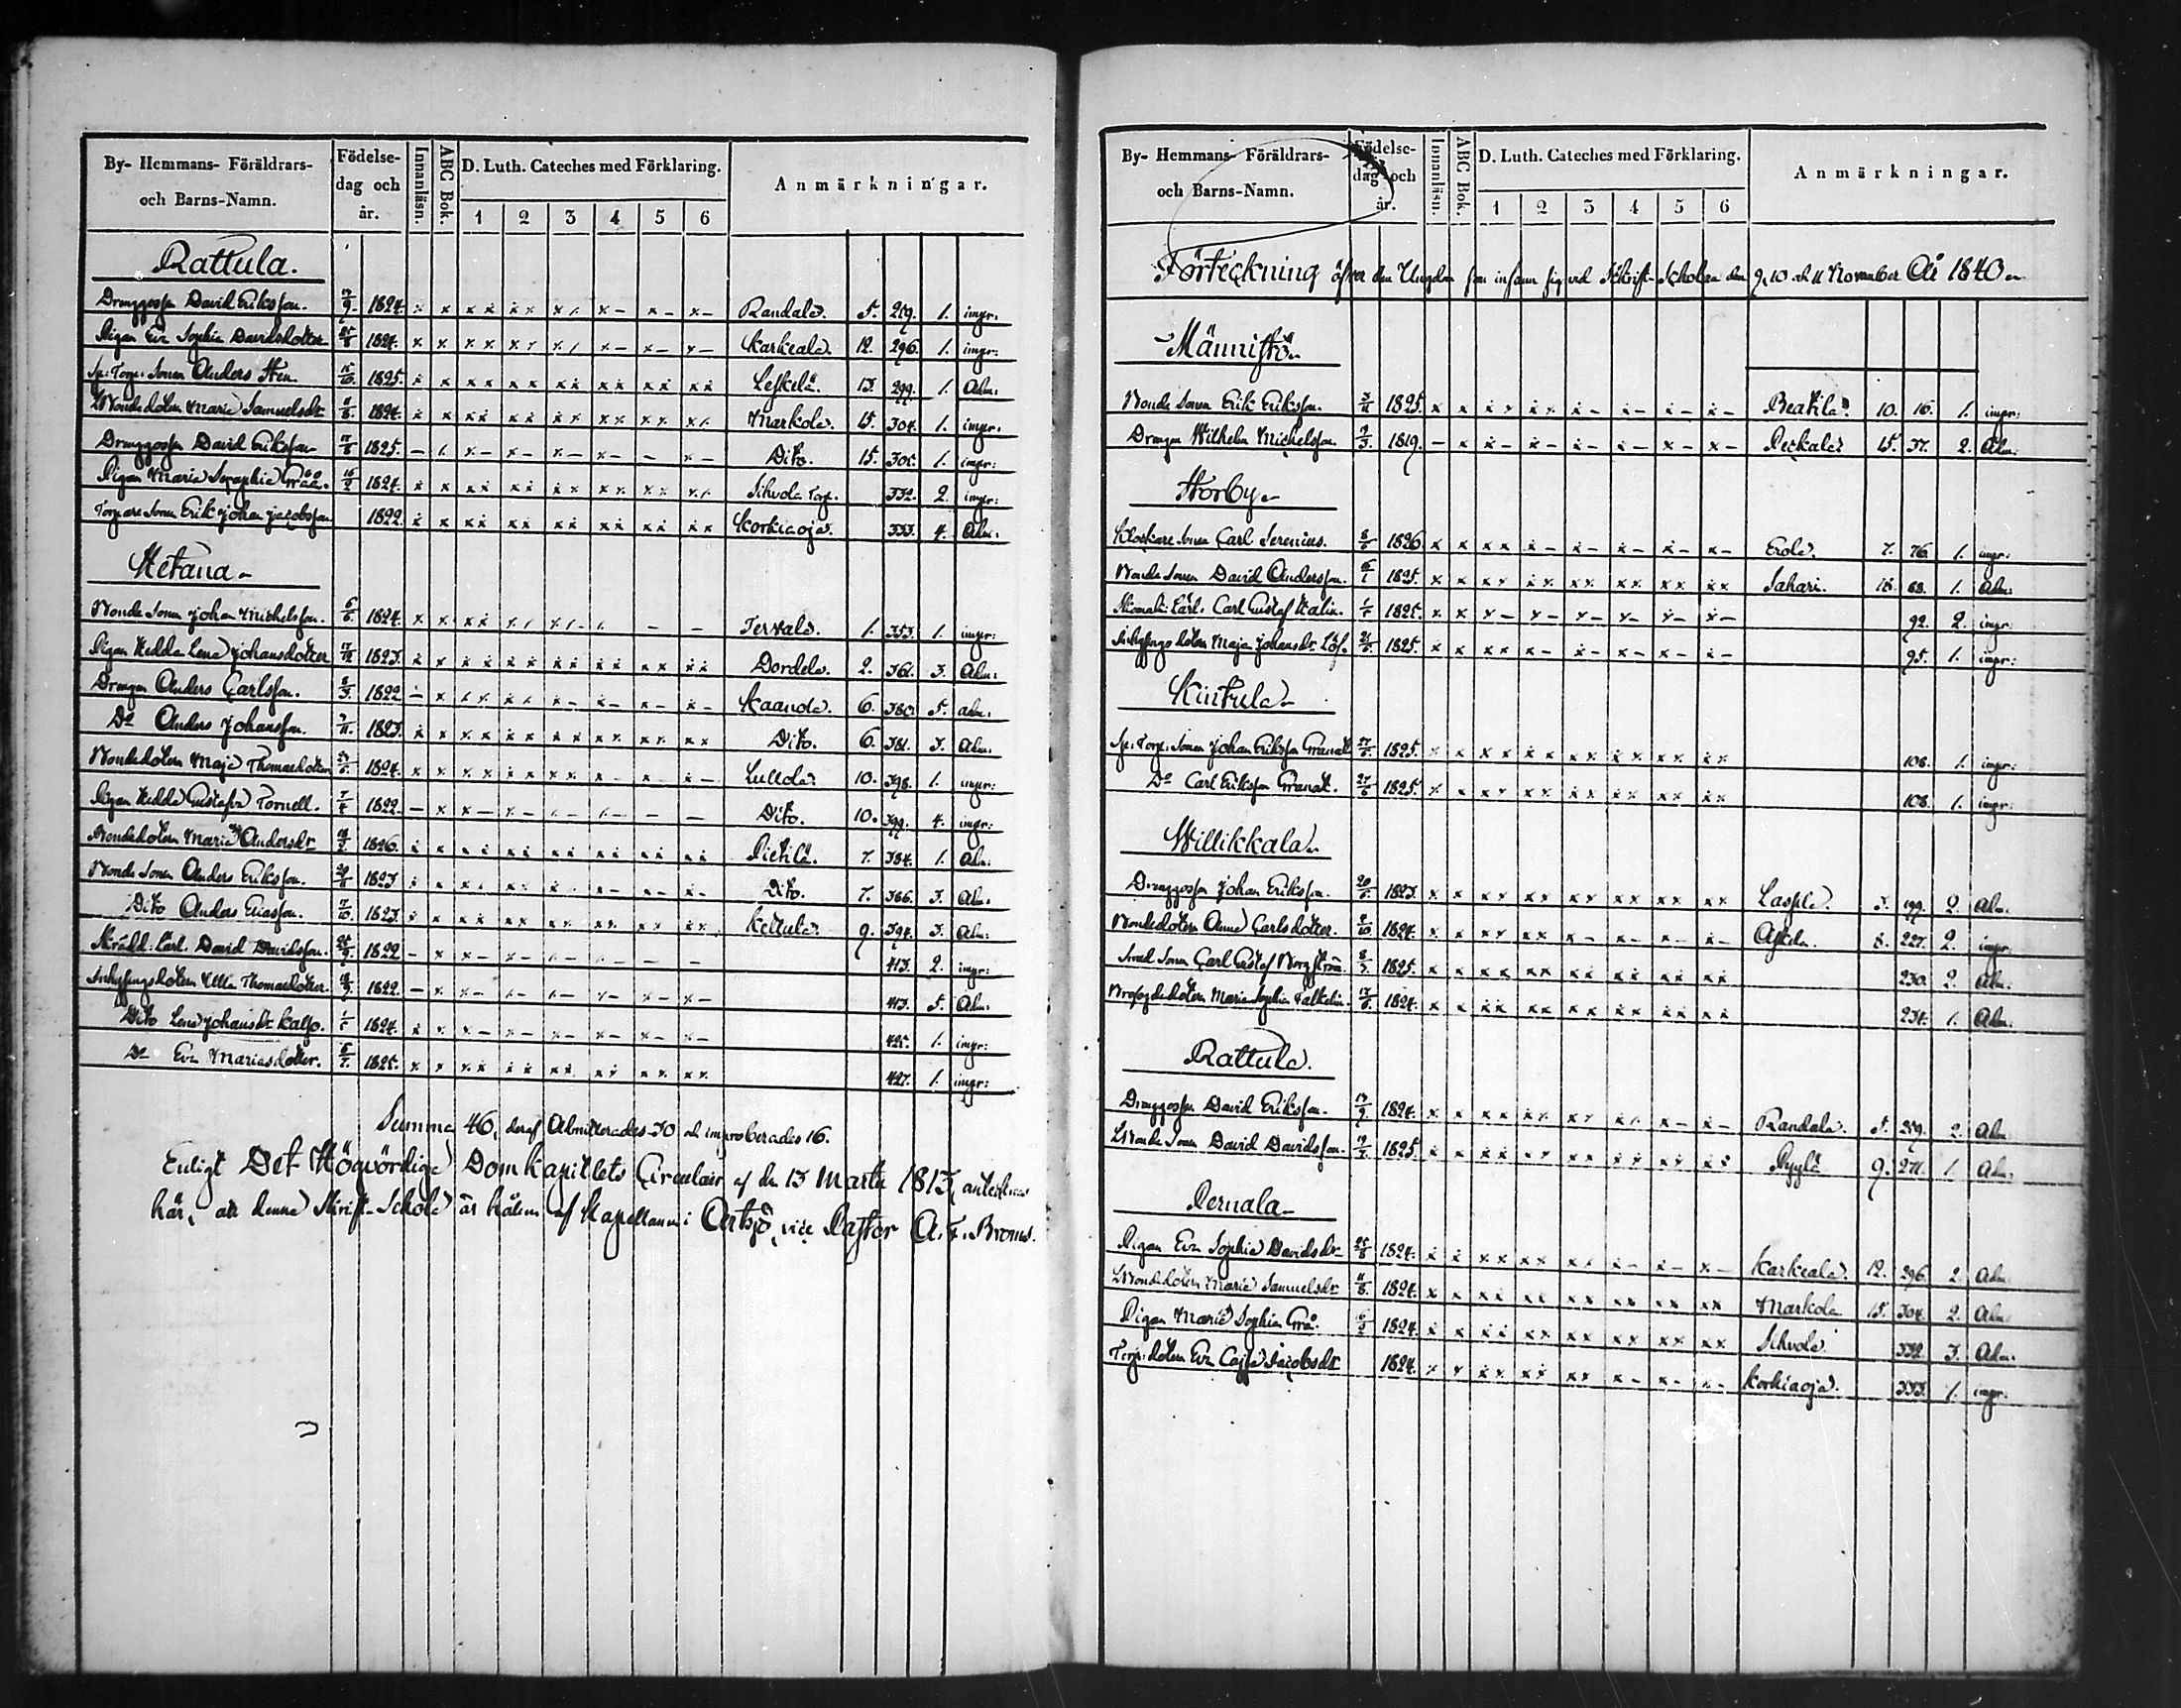 By- Hemmans- Föräldrars- och Barns-Namn. Födelse-dag och år. Innanläsn. ABC Bok. D. Luth. Cateches med Förklaring. 1 2 3 4 5 6 Anmärkningar.
Rattula.
Drenggossen David Eriksson. 17/9 1824. Randala. 5. 259. 1. impr:
Pigan Eva Sophia Davidsdotter 25/8 1824. Karkeala. 12. 296. 1. impr:
Anders Sten. 1825. Leskelä. 13. 299. 1. Adm:
Bondedotern Maria Samuelsdr 11/8 1824. Markola. 15. 304. 1. impr:
Drenggossen David Eriksson 1825. Dito. 15. 305. 1. impr:
Pigan Maria Sophia Grå. 1824. Sihvola Torp. 332. 2. impr:
Torpare Sonen Erik Johan Jacobsson 1822. Korkiaoja. 333. 4. Adm:
Hetana
Bonde Sonen Johan Michelsson. 1824. Tervala. 1. 353. 1. impr:
Pigan Hedda Lena Johansdotter 1823. Dordela. 2. 361. 3. Adm:
Drengen Anders Carlsson. 1822. Kaanda. 6. 380. 5. adm:
Do Anders Johansson. 1823. Dito. 6. 381. 3. Adm:
Bondedotern Maja Thomasdotter 1824. Lullola. 10. 398. 1. impr:
Pigan Hedda Gustafva Tornell. 7/4 1822. Dito. 10. 399. 4. impr:
Bondedotern Maria Andersdr 1826. Pietilä. 7. 384. 1. Adm:
Bonde Sonen Anders Eriksson. 1823. Dito. 7. 386. 3. Adm:
Dito Anders Eriasson. 7/10 1823. Keitula. 9. 394. 3. Adm:
Skrädd: Lärl. David Davidsson. 25/9 1822. 413. 2. impr:
Inhysingsdotern Ulla Thomasdotter. 1822. 413. 5. Adm:
Dito Lena Johansdr Kallo. 1824. 425. 1. impr:
Do Eva Mariasdotter. 1825. 427. 1. impr:
Summa 46, deraf Admitterades 30 och improberades 16.
Enligt Det Högvördiga Domkapitlets Circulair af den 13 Martii 1813, antecknas
här, att denna Skrift-Schola är hållen af Kapellanen i Artsjö, vice Pastor A. F. Bronus.
By- Hemmans- Föräldrars- och Barns-Namn. Födelse-dag och år. Innanläsn. ABC Bok. D. Luth. Cateches med Förklaring. 1 2 3 4 5 6 Anmärkningar.
Förteckning öfver den Ungdom som infann sig vid Skrift-Scholan den 9, 10 och 11 November År 1840
Männistö
Bonde Sonen Erik Eriksson. 1825. Beatila. 10. 16. 1. impr:
Drengen Wilhelm Michelsson. 1819. Peckala. 15. 37. 2. Adm:
Storby
Klockare Sonen Carl Serenius. 1826. Erola. 7. 76. 1. impr:
Bonde Sonen David Andersson. 1825. Sahari. 18. 88. 1. Adm:
Skomak: Lärl. Carl Gustaf Stalin. 1825. 92. 2. impr:
Inhysings dotern Maja Johansdr Löf. 1825. 95. 1. impr:
Kintula
Sp: Torp: Sonen Johan Eriksson Granat 27/6 1825. 108. 1. impr:
Do Carl Eriksson Granat. 27/6 1825. 108. 1. impr:
Willikkala
Drenggossen Johan Eriksson. 1823. Laspla. 3. 199. 2. Adm:
Bondedotern Anna Carlsdotter. 1824. 8. 227. 2. impr:
Smed Sonen Carl Gustaf Bergström. 1825. 230. 2. Adm:
Maria Sophia Falkelin. 1824. 234. 1. Adm:
Rattula.
Drenggossen David Eriksson. 17/9 1824. Randala. 5. 259. 2. Adm:
Bonde Sonen David Davidsson. 1825. Pyylä 9. 271. 1. Adm:
Pernala
Pigan Eva Sophia Davidsdr 25/8 1824. Karkeala. 12. 296. 2. Adm:
Bondedotern Maria Samuelsdr 11/8 1824. Markola 15. 304. 2. Adm:
Pigan Maria Sophia Grå. 1824. Sihvola 332. 3. Adm:
Torp: dotern Eva Cajsa Jacobsdr 1824. Korkiaoja. 333. 1. impr: